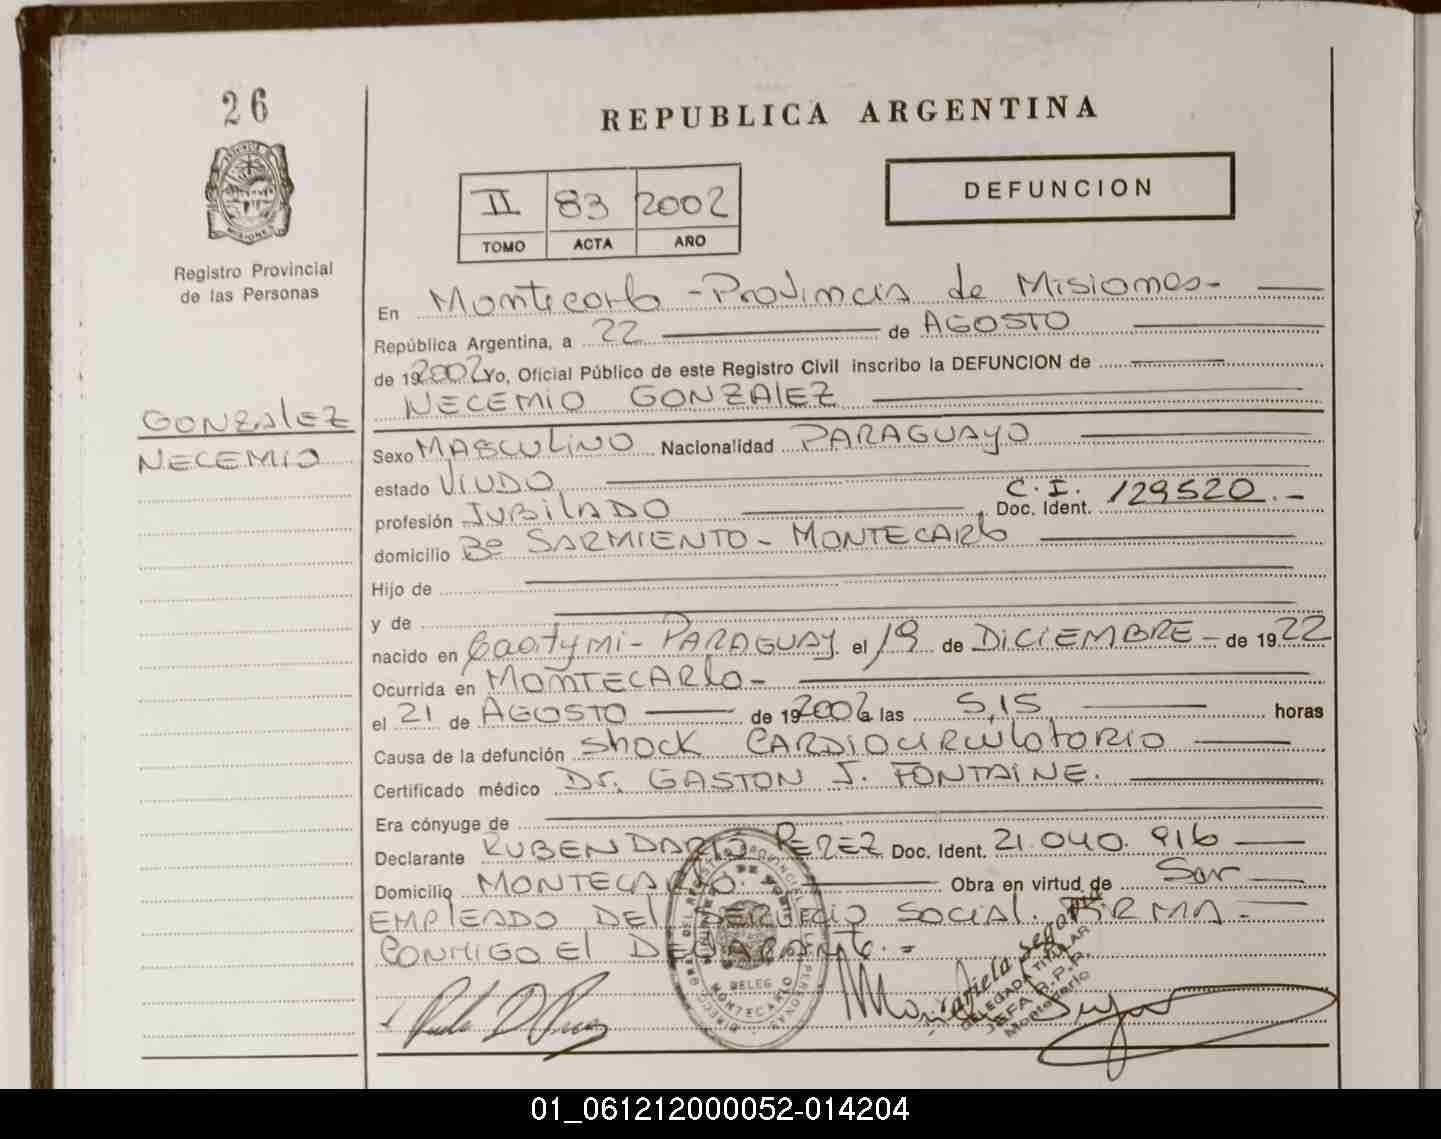 26
REPUBLICA ARGENTINA
DEFUNCION
II 83 2002
TOMO ACTA AÑO
Registro Provincial
de las Personas
En Montecarlo - Provincia de Misiones -
República Argentina, a 22 de AGOSTO
de 192002 Yo, Oficial Público de este Registro Civil inscribo la DEFUNCION de
NECEMIO GONZALEZ
GONZALEZ
NECEMIO
Sexo MASCULINO Nacionalidad PARAGUAYO
estado VIUDO
profesión JUBILADO Doc. Ident. C.I. 129520.-
domicilio Bº SARMIENTO - MONTECARLO
Hijo de
y de
nacido en Caatymi - PARAGUAY el 19 de DICIEMBRE - de 1922
Ocurrida en MONTECARLO -
el 21 de AGOSTO de 192002 a las 5,15 horas
Causa de la defunción Shock CARDIOCIRCULATORIO
Certificado médico Dr. GASTON J. FONTAINE.
Era cónyuge de
Declarante RUBEN DARIO PEREZ Doc. Ident. 21.040.916
Domicilio MONTECARLO. Obra en virtud de Ser
EMPLEADO DEL SERVICIO SOCIAL. FIRMA -
CONMIGO El DECLARANTE. =
DELEG
MONTECARLO
Mariela Segovia
DELEGADA TITULAR
JEFA R.P.P.
Montecarlo
01_061212000052-014204